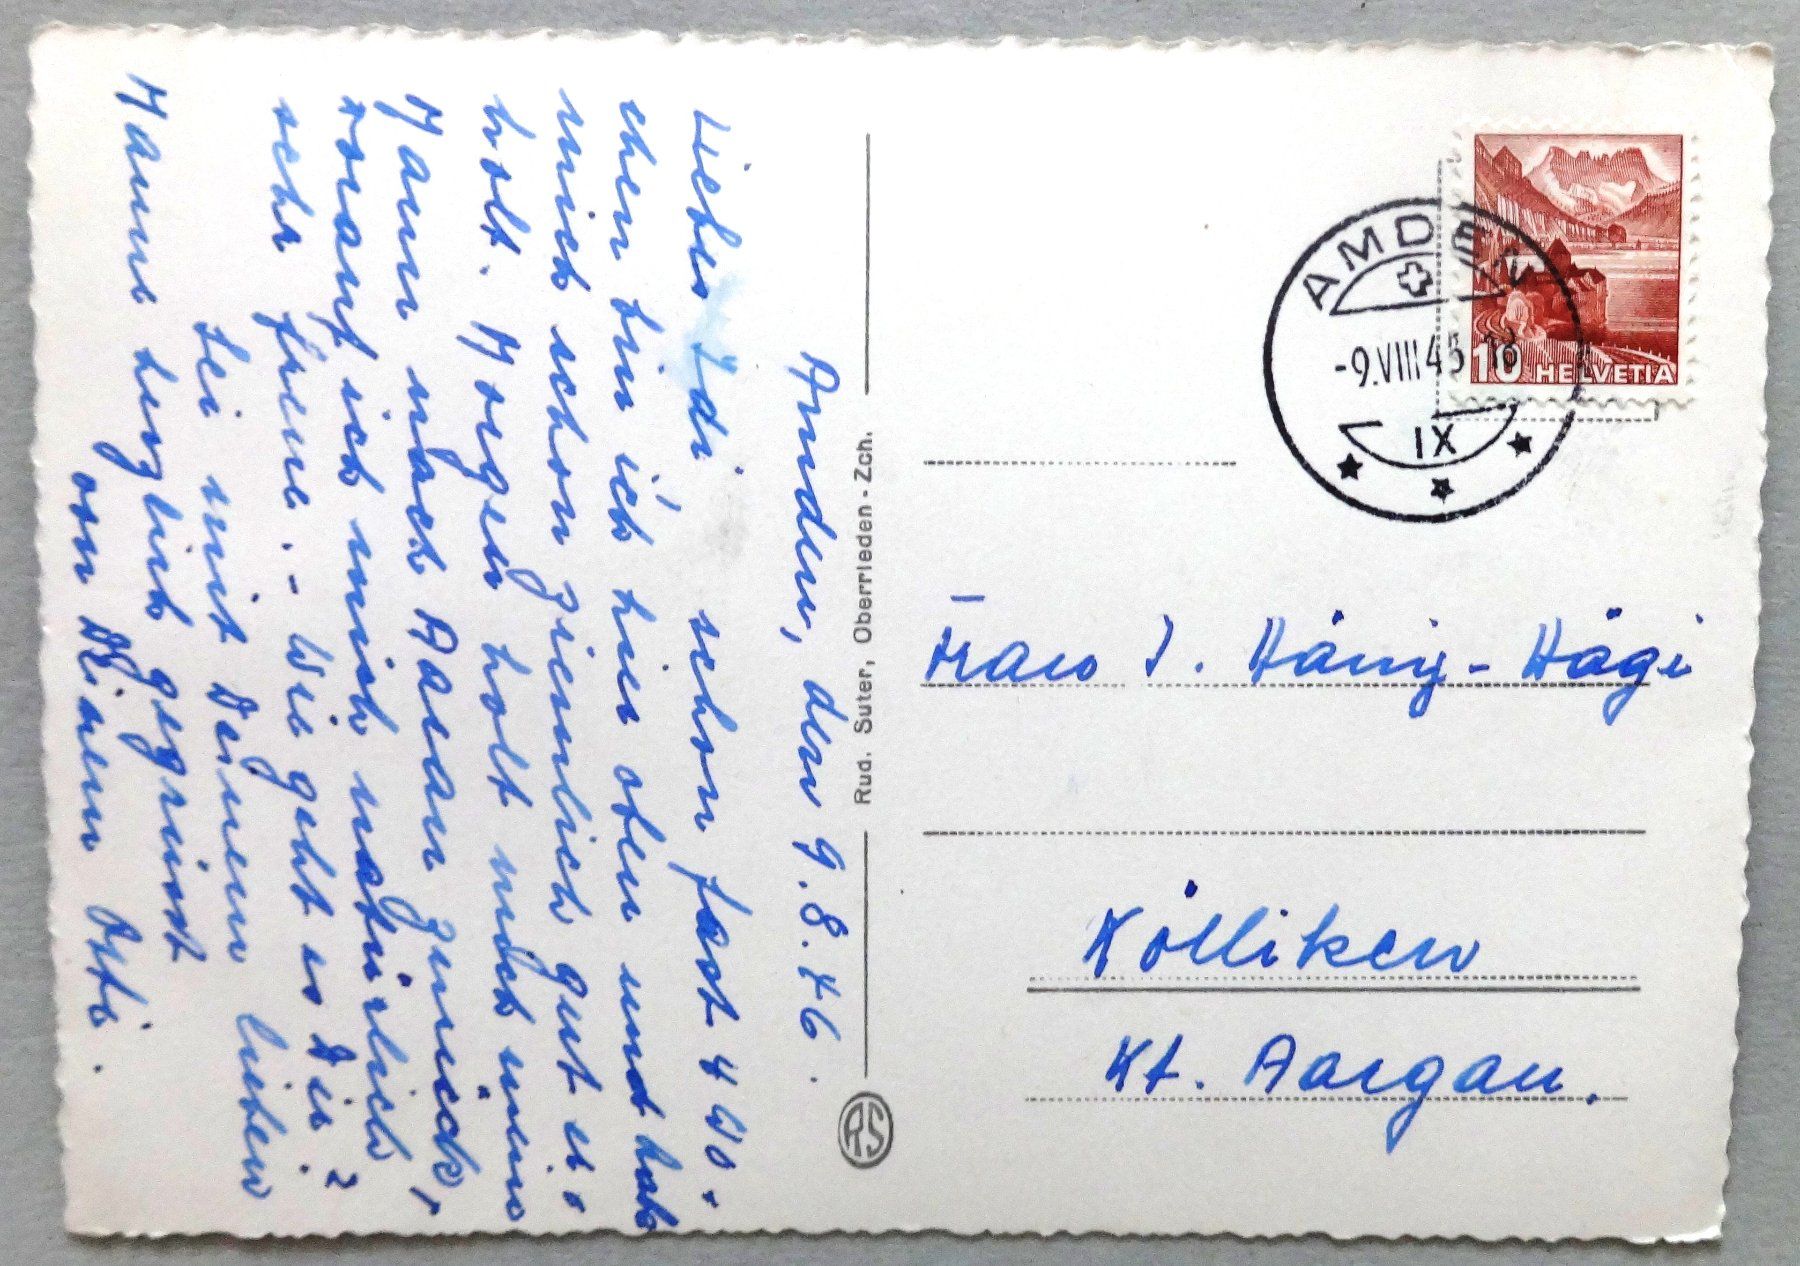 Amden, den 9.8.46.
Liebes Idi, schon fast 4 Wo-
chen bin ich hier oben und hab
mich schon ziemlich gut er-
holt. Morgen holt mich mein
Mann nach Aarau zurück,
worauf ich mich natürlich
sehr freue. - Wie geht es Dir?
Sei mit Deinem lieben
Manne herzlich gegrüsst
von Deiner
Rud. Suter, Oberrieden-Zch.
RS
AMDEN
-9.VIII 45 18
IX
10 HELVETIA
Frau I. Hänig-Hägi
Kölliken
Kt. Aargau.